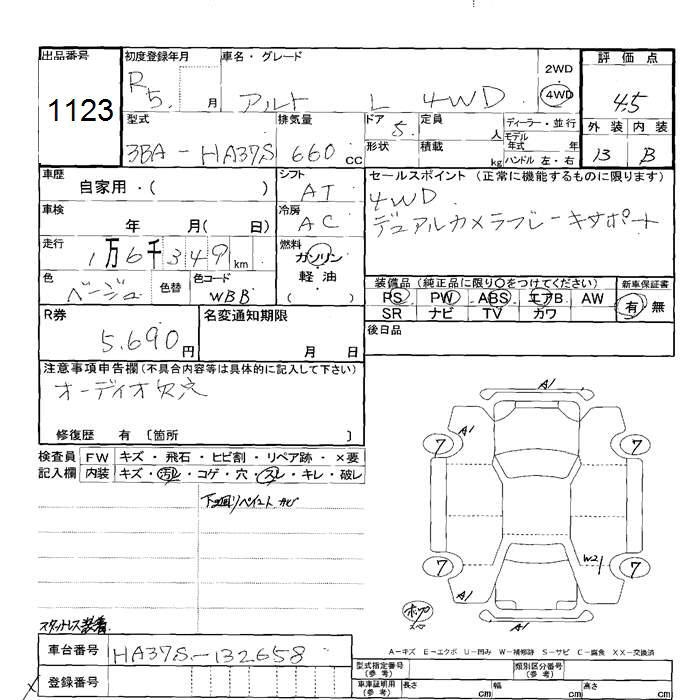 出品番号 初度登録年月 車名・グレード 2WD 評価点
1123 R5. 月 アルト L 4WD ・ 4WD 4.5
型式 排気量 ドア 5. 定員 人 ディーラー・並行 外装 内装
モデル年式 年
3BA-HA37S 660 CC 形状 積載 kg ハンドル 左・右 13 B
車歴 自家用・( ) シフト AT セールスポイント (正常に機能するものに限ります)
4WD
車検 年 月( 日) 冷房 AC デュアルカメラブレーキサポート
走行 1万6千349km 燃料 ガソリン
軽油
( )
色 ベージュ 色替 色コード WBB
装備品 (純正品に限り○をつけてください) 新車保証書
PS PW ABS エアB AW 有・無
SR ナビ TV カワ
R券 5.690円 名変通知期限 月 日 後日品
注意事項申告欄(不具合内容等は具体的に記入して下さい)
オーディオ欠穴
修復歴 有 〔箇所 〕
検査員記入欄 FW キズ・飛石・ヒビ割・リペア跡・×要
内装 キズ・汚れ・コゲ・穴・スレ・キレ・破レ
下廻りペイント サビ
A1
A1
7 7
W2
7 7
A1
A1
スタットレス装着
A-キズ E-エクボ U-凹み W-補修跡 S-サビ C-腐食 XX-交換済
車台番号 HA37S-132658
登録番号
型式指定番号(参考) 類別区分番号(参考)
車庫証明用(参考) 長さ cm 幅 cm 高さ cm